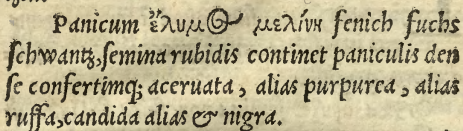 Panicum ἔλυμ☉ μελίνη fenich fuchs
ſchwantz, ſemina rubidis continet paniculis den
ſe confertimq; aceruata, alias purpurea, alias
ruffa, candida alias & nigra.